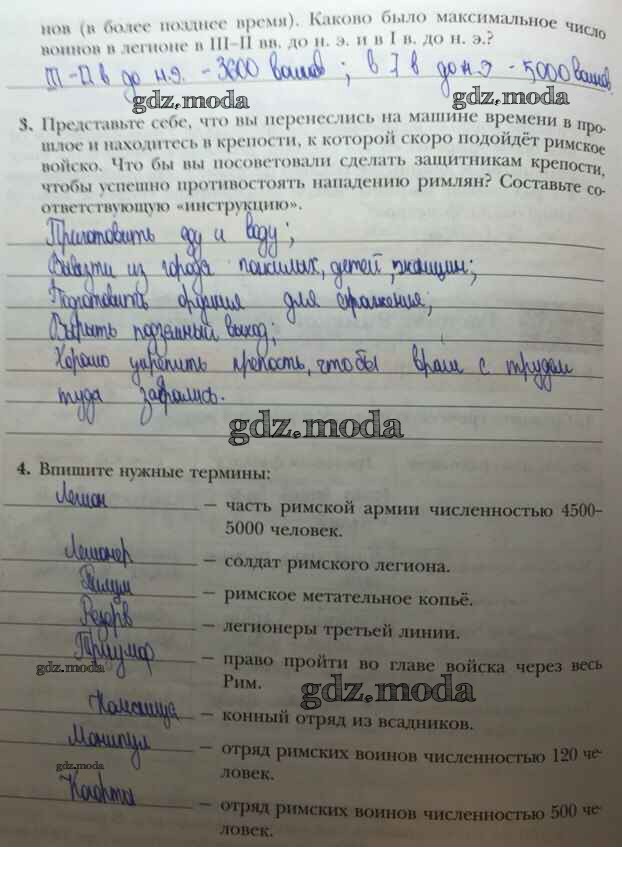 нов (в более позднее время). Каково было максимальное число
воинов в легионе в III–II вв. до н. э. и в I в. до н. э.?
III -II в до н.э. - 3600 воинов ; в I в до н.э - 5000 воинов
gdz.moda gdz.moda
3. Представьте себе, что вы перенеслись на машине времени в про-
шлое и находитесь в крепости, к которой скоро подойдёт римское
войско. Что бы вы посоветовали сделать защитникам крепости,
чтобы успешно противостоять нападению римлян? Составьте со-
ответствующую «инструкцию».
Приготовить еду и воду;
Вывезти из города пожилых, детей, женщин;
Подготовить орудия для сражения;
Вырыть подземный выход;
Хорошо укрепить крепость, чтобы враги с трудом
туда забрались.
gdz.moda
4. Впишите нужные термины:
Легион — часть римской армии численностью 4500–
5000 человек.
Легионер — солдат римского легиона.
Пилум — римское метательное копьё.
Резерв — легионеры третьей линии.
Триумф — право пройти во главе войска через весь
gdz.moda Рим.
gdz.moda
Конница — конный отряд из всадников.
Манипул — отряд римских воинов численностью 120 че-
gdz.moda ловек.
Когорта — отряд римских воинов численностью 500 че-
ловек.